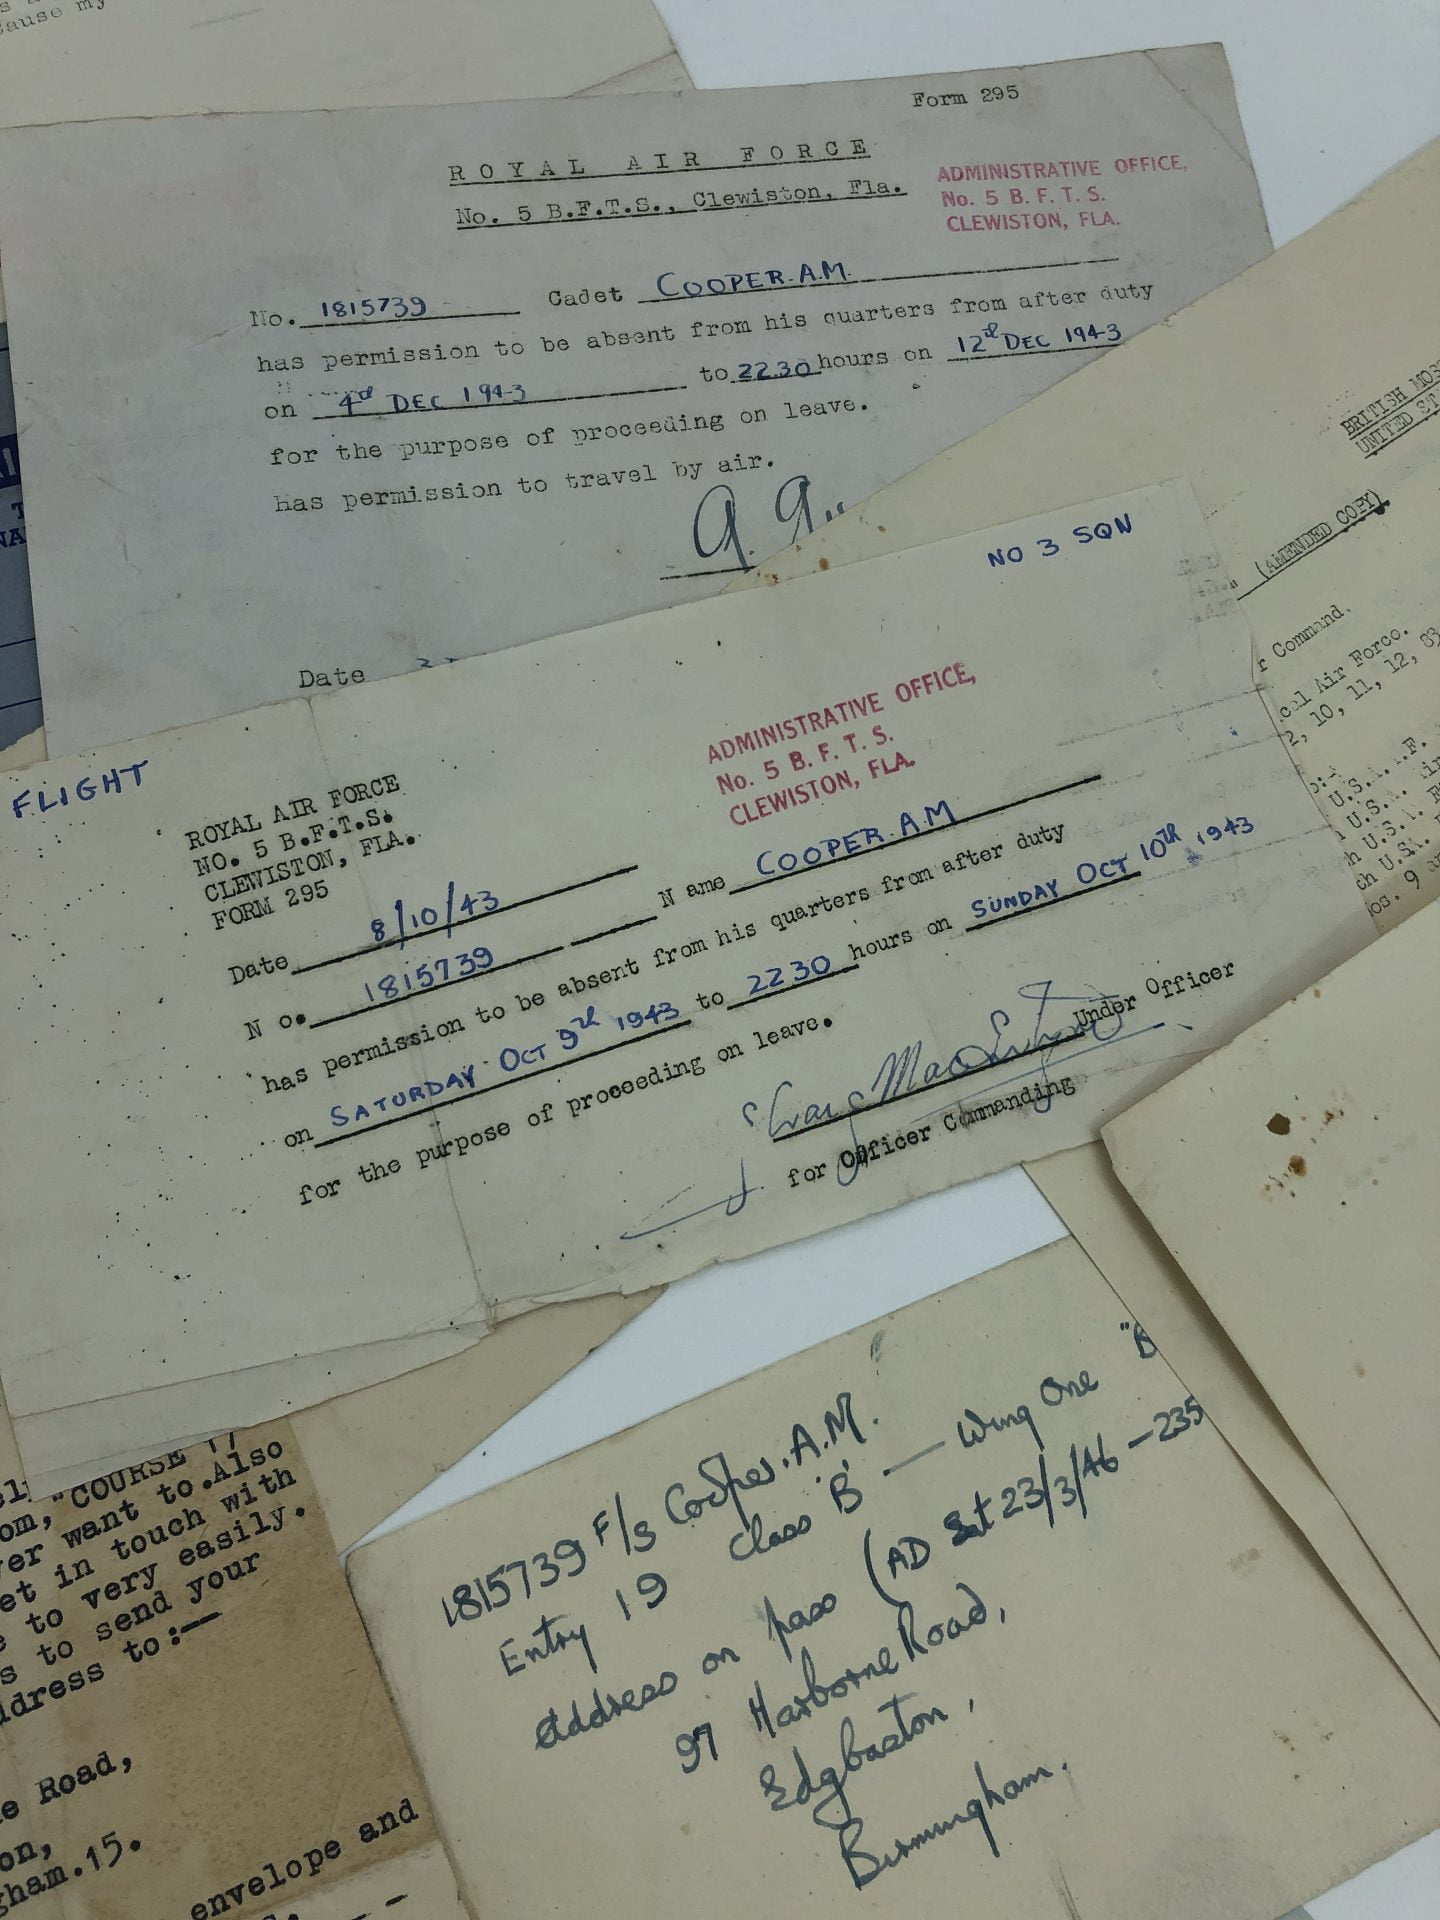 Cause my
Form 295
ROYAL AIR FORCE
No. 5 B.F.T.S., Clewiston, Fla.
ADMINISTRATIVE OFFICE,
No. 5 B. F. T. S.
CLEWISTON, FLA.
No. 1815739 Cadet COOPER.A.M.
has permission to be absent from his quarters from after duty
on 4th DEC 1943 to 2230 hours on 12th DEC 1943
for the purpose of proceeding on leave.
Has permission to travel by air.
Date
BRITISH
UNITED
(AMENDED COPY)
Command.
Air Force.
10, 11, 12,
NO 3 SQN
FLIGHT
ROYAL AIR FORCE
NO. 5 B.F.T.S.
CLEWISTON, FLA.
FORM 295
ADMINISTRATIVE OFFICE,
No. 5 B. F. T. S.
CLEWISTON, FLA.
Date 8/10/43
No. 1815739 Name COOPER.A.M
has permission to be absent from his quarters from after duty
on SATURDAY OCT 9th 1943 to 2230 hours on SUNDAY OCT 10th 1943
for the purpose of proceeding on leave.
Under Officer
for Officer Commanding
1815739 F/S Cooper.A.M.
Entry 19 Class 'B' — Wing One "B
Address on pass (AD Sat 23/3/46 – 235
97 Harborne Road,
Edgbaston,
Birmingham.
"COURSE 17
want to.Also
in touch with
to very easily.
to send your
to:--
Road,
15.
envelope and